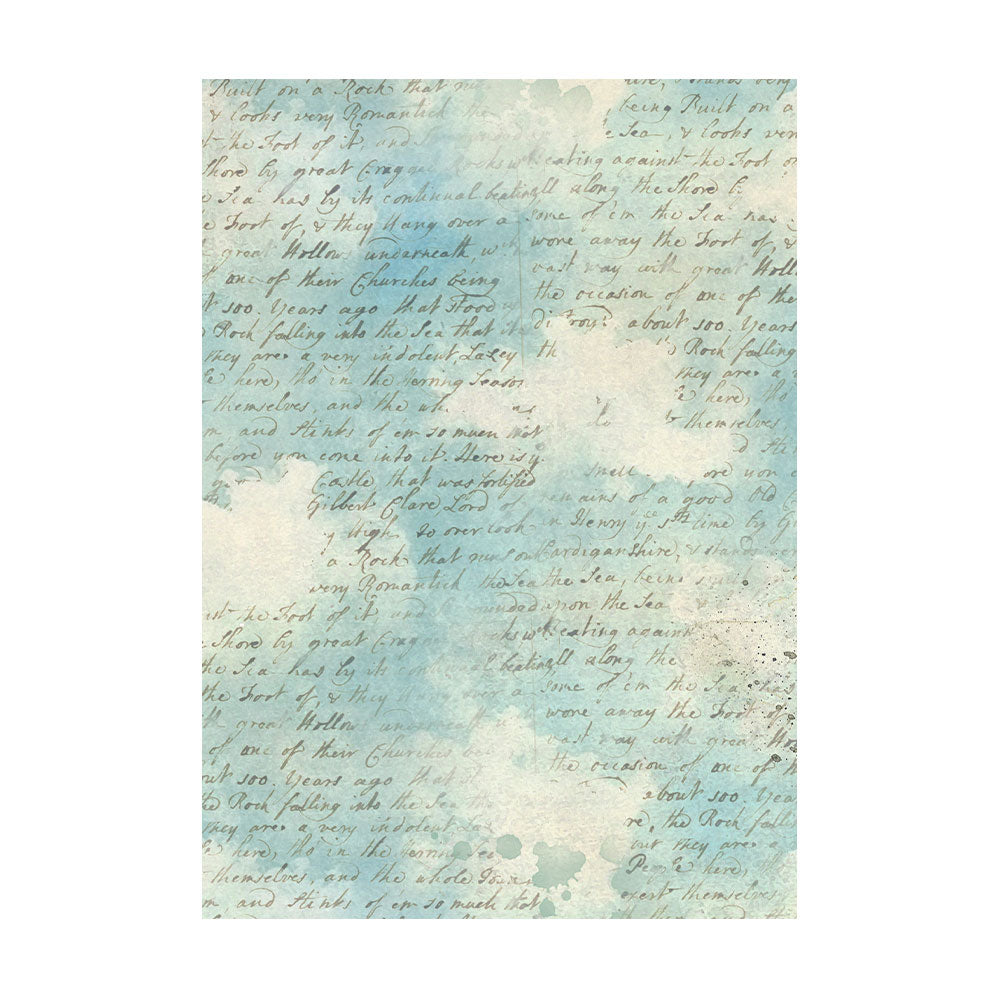 Built on a Rock that
& looks very Romantick the
the Foot of it, and
Shore by great Craggy Rocks w
e Sea has by its continual beating
e Foot of, & they Hang over a
great Hollows underneath, w
f one of their Churches being
t 500. Years ago that stood
Rock falling into the Sea that
they are a very indolent Lazey
e here, tho' in the Herring Season
themselves, and the wh
m and Stinks of em so much that
before you come into it. Here is
Castle, that was fortified
Gilbert Clare, Lord of
y High so over look
a Rock that runs out
very Romantick the Sea
the Foot of it and
Shore by great Craggy Rocks w
the Sea has by its continual beating
the Foot of, & they Hang over a
great Hollows underneath
of one of their Churches
500. Years ago that
the Rock falling into the Sea the
they are a very indolent La
e here, tho' in the Herring Sea
themselves, and the whole Town
m and Stinks of em so much that
being Built on a
e Sea, & looks very
beating against the Foot o
all along the Shore b
some of 'em the Sea has
wore away the Foot of, &
vast way with great Holl
the occasion of one of the
about 500. Years
th Rock falling
they are a
e here, tho
themselves
smell ore you
remains of a good Old
in Henry ye 5th time by G
Cardiganshire, & stands
the Sea, being
upon the Sea
beating against
all along the
some of 'em the Sea has
wore away the Foot of
vast way with great H
the occasion of one of
about 500. Yea
re, the Rock fall
but they are a
People here,
exert themselves